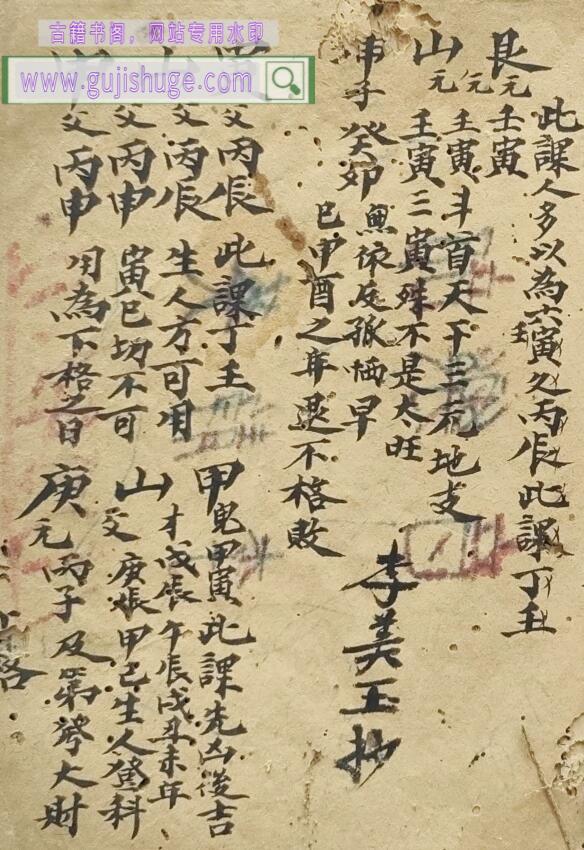 古籍书阁，网站专用水印
www.gujishuge.com
此課人多以為六寅久丙辰此課丁壬
壬
艮元壬寅
元壬寅斗首天干三元地支
山元壬寅三寅殊不是太旺
子癸卯
巳申酉之年退不格敗
李美玉抄
寅父丙辰此課丁壬
山父丙辰生人方可用
父丙申寅巳切不可
甲父丙申用為下格之日
甲鬼甲寅此課先凶後吉
才戊辰午辰戌丑未年
山父庚辰甲己生人登科
庚元丙子及第發大財